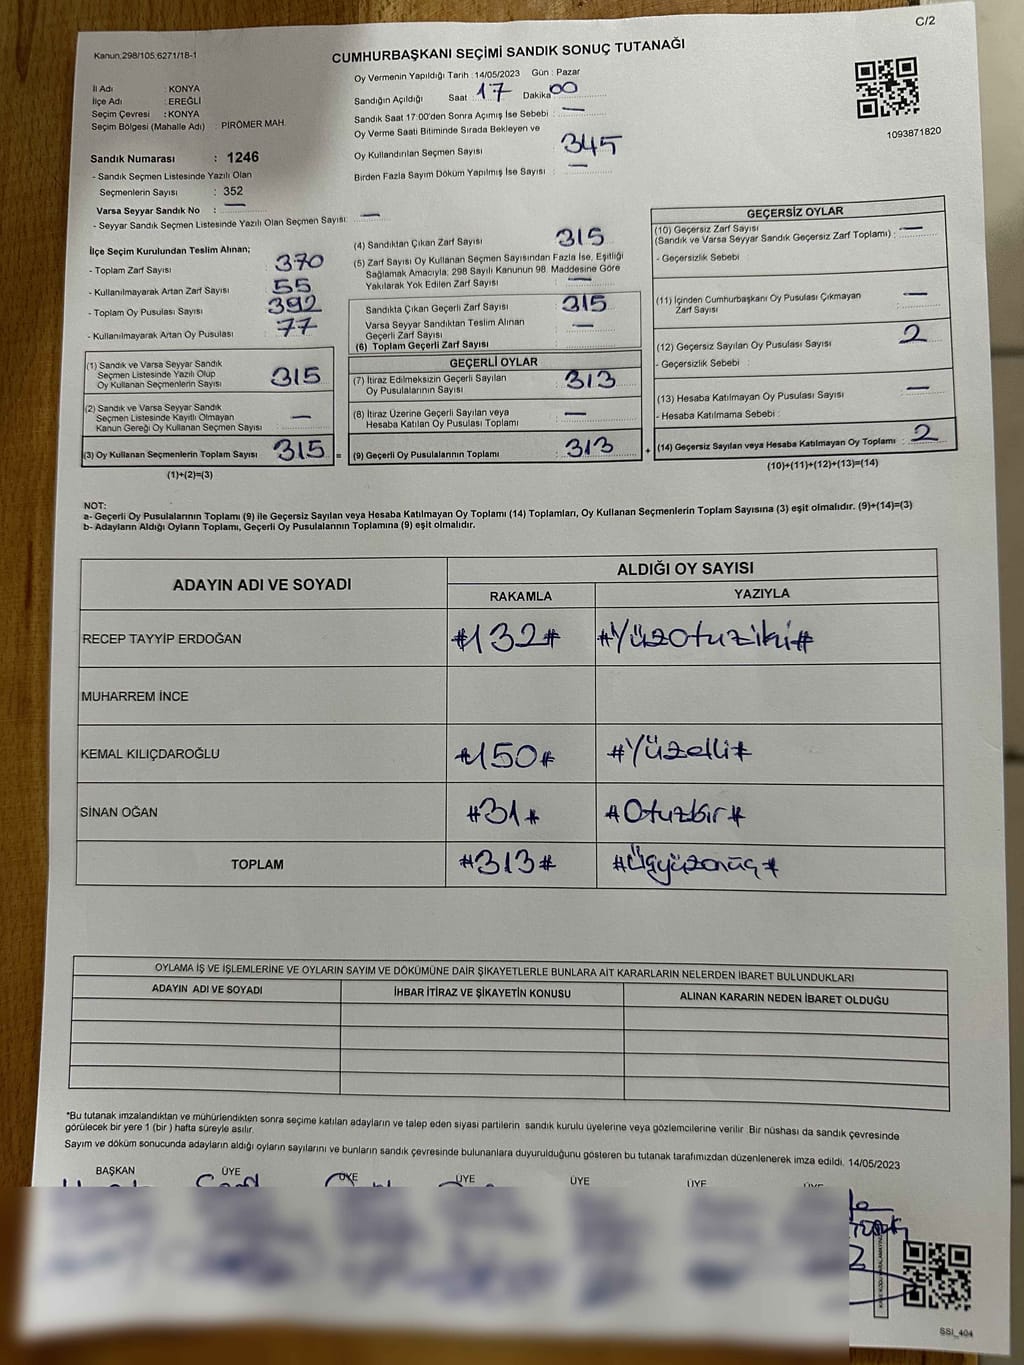 C/2
Kanun:298/105,6271/18-1
CUMHURBAŞKANI SEÇİMİ SANDIK SONUÇ TUTANAĞI
İl Adı : KONYA
İlçe Adı : EREĞLİ
Seçim Çevresi : KONYA
Seçim Bölgesi (Mahalle Adı) : PİRÖMER MAH.
Oy Vermenin Yapıldığı Tarih : 14/05/2023 Gün : Pazar
Sandığın Açıldığı Saat : 17 Dakika 00
Sandık Saat 17:00'den Sonra Açımış İse Sebebi : —
Oy Verme Saati Bitiminde Sırada Bekleyen ve
Oy Kullandırılan Seçmen Sayısı 345
Birden Fazla Sayım Döküm Yapılmış İse Sayısı : —
1093871820
Sandık Numarası : 1246
- Sandık Seçmen Listesinde Yazılı Olan
Seçmenlerin Sayısı : 352
Varsa Seyyar Sandık No : —
- Seyyar Sandık Seçmen Listesinde Yazılı Olan Seçmen Sayısı: —
İlçe Seçim Kurulundan Teslim Alınan;
- Toplam Zarf Sayısı 370
- Kullanılmayarak Artan Zarf Sayısı 55
- Toplam Oy Pusulası Sayısı 392
- Kullanılmayarak Artan Oy Pusulası 77
(1) Sandık ve Varsa Seyyar Sandık
Seçmen Listesinde Yazılı Olup
Oy Kullanan Seçmenlerin Sayısı 315
(2) Sandık ve Varsa Seyyar Sandık
Seçmen Listesinde Kayıtlı Olmayan
Kanun Gereği Oy Kullanan Seçmen Sayısı: —
(3) Oy Kullanan Seçmenlerin Toplam Sayısı 315 =
(1)+(2)=(3)
(4) Sandıktan Çıkan Zarf Sayısı 315
(5) Zarf Sayısı Oy Kullanan Seçmen Sayısından Fazla İse, Eşitliği
Sağlamak Amacıyla, 298 Sayılı Kanunun 98. Maddesine Göre
Yakılarak Yok Edilen Zarf Sayısı : —
Sandıkta Çıkan Geçerli Zarf Sayısı 315
Varsa Seyyar Sandıktan Teslim Alınan
Geçerli Zarf Sayısı : —
(6) Toplam Geçerli Zarf Sayısı :
GEÇERLİ OYLAR
(7) İtiraz Edilmeksizin Geçerli Sayılan
Oy Pusulalarının Sayısı : 313
(8) İtiraz Üzerine Geçerli Sayılan veya
Hesaba Katılan Oy Pusulası Toplamı : —
(9) Geçerli Oy Pusulalarının Toplamı : 313 +
GEÇERSİZ OYLAR
(10) Geçersiz Zarf Sayısı
(Sandık ve Varsa Seyyar Sandık Geçersiz Zarf Toplamı) : —
- Geçersizlik Sebebi :
(11) İçinden Cumhurbaşkanı Oy Pusulası Çıkmayan
Zarf Sayısı : —
(12) Geçersiz Sayılan Oy Pusulası Sayısı : 2
- Geçersizlik Sebebi :
(13) Hesaba Katılmayan Oy Pusulası Sayısı : —
- Hesaba Katılmama Sebebi :
(14) Geçersiz Sayılan veya Hesaba Katılmayan Oy Toplamı : 2
(10)+(11)+(12)+(13)=(14)
NOT:
a- Geçerli Oy Pusulalarının Toplamı (9) ile Geçersiz Sayılan veya Hesaba Katılmayan Oy Toplamı (14) Toplamları, Oy Kullanan Seçmenlerin Toplam Sayısına (3) eşit olmalıdır. (9)+(14)=(3)
b- Adayların Aldığı Oyların Toplamı, Geçerli Oy Pusulalarının Toplamına (9) eşit olmalıdır.
ADAYIN ADI VE SOYADI ALDIĞI OY SAYISI
RAKAMLA YAZIYLA
RECEP TAYYİP ERDOĞAN #132# #Yüzotuziki#
MUHARREM İNCE
KEMAL KILIÇDAROĞLU #150# #Yüzelli#
SİNAN OĞAN #31# #Otuzbir#
TOPLAM #313# #Üçyüzonüç#
OYLAMA İŞ VE İŞLEMLERİNE VE OYLARIN SAYIM VE DÖKÜMÜNE DAİR ŞİKAYETLERLE BUNLARA AİT KARARLARIN NELERDEN İBARET BULUNDUKLARI
ADAYIN ADI VE SOYADI İHBAR İTİRAZ VE ŞİKAYETİN KONUSU ALINAN KARARIN NEDEN İBARET OLDUĞU
*Bu tutanak imzalandıktan ve mühürlendikten sonra seçime katılan adayların ve talep eden siyasi partilerin sandık kurulu üyelerine veya gözlemcilerine verilir. Bir nüshası da sandık çevresinde
görülecek bir yere 1 (bir ) hafta süreyle asılır.
Sayım ve döküm sonucunda adayların aldığı oyların sayılarını ve bunların sandık çevresinde bulunanlara duyurulduğunu gösteren bu tutanak tarafımızdan düzenlenerek imza edildi. 14/05/2023
BAŞKAN ÜYE ÜYE ÜYE ÜYE ÜYE ÜYE
SSI_404